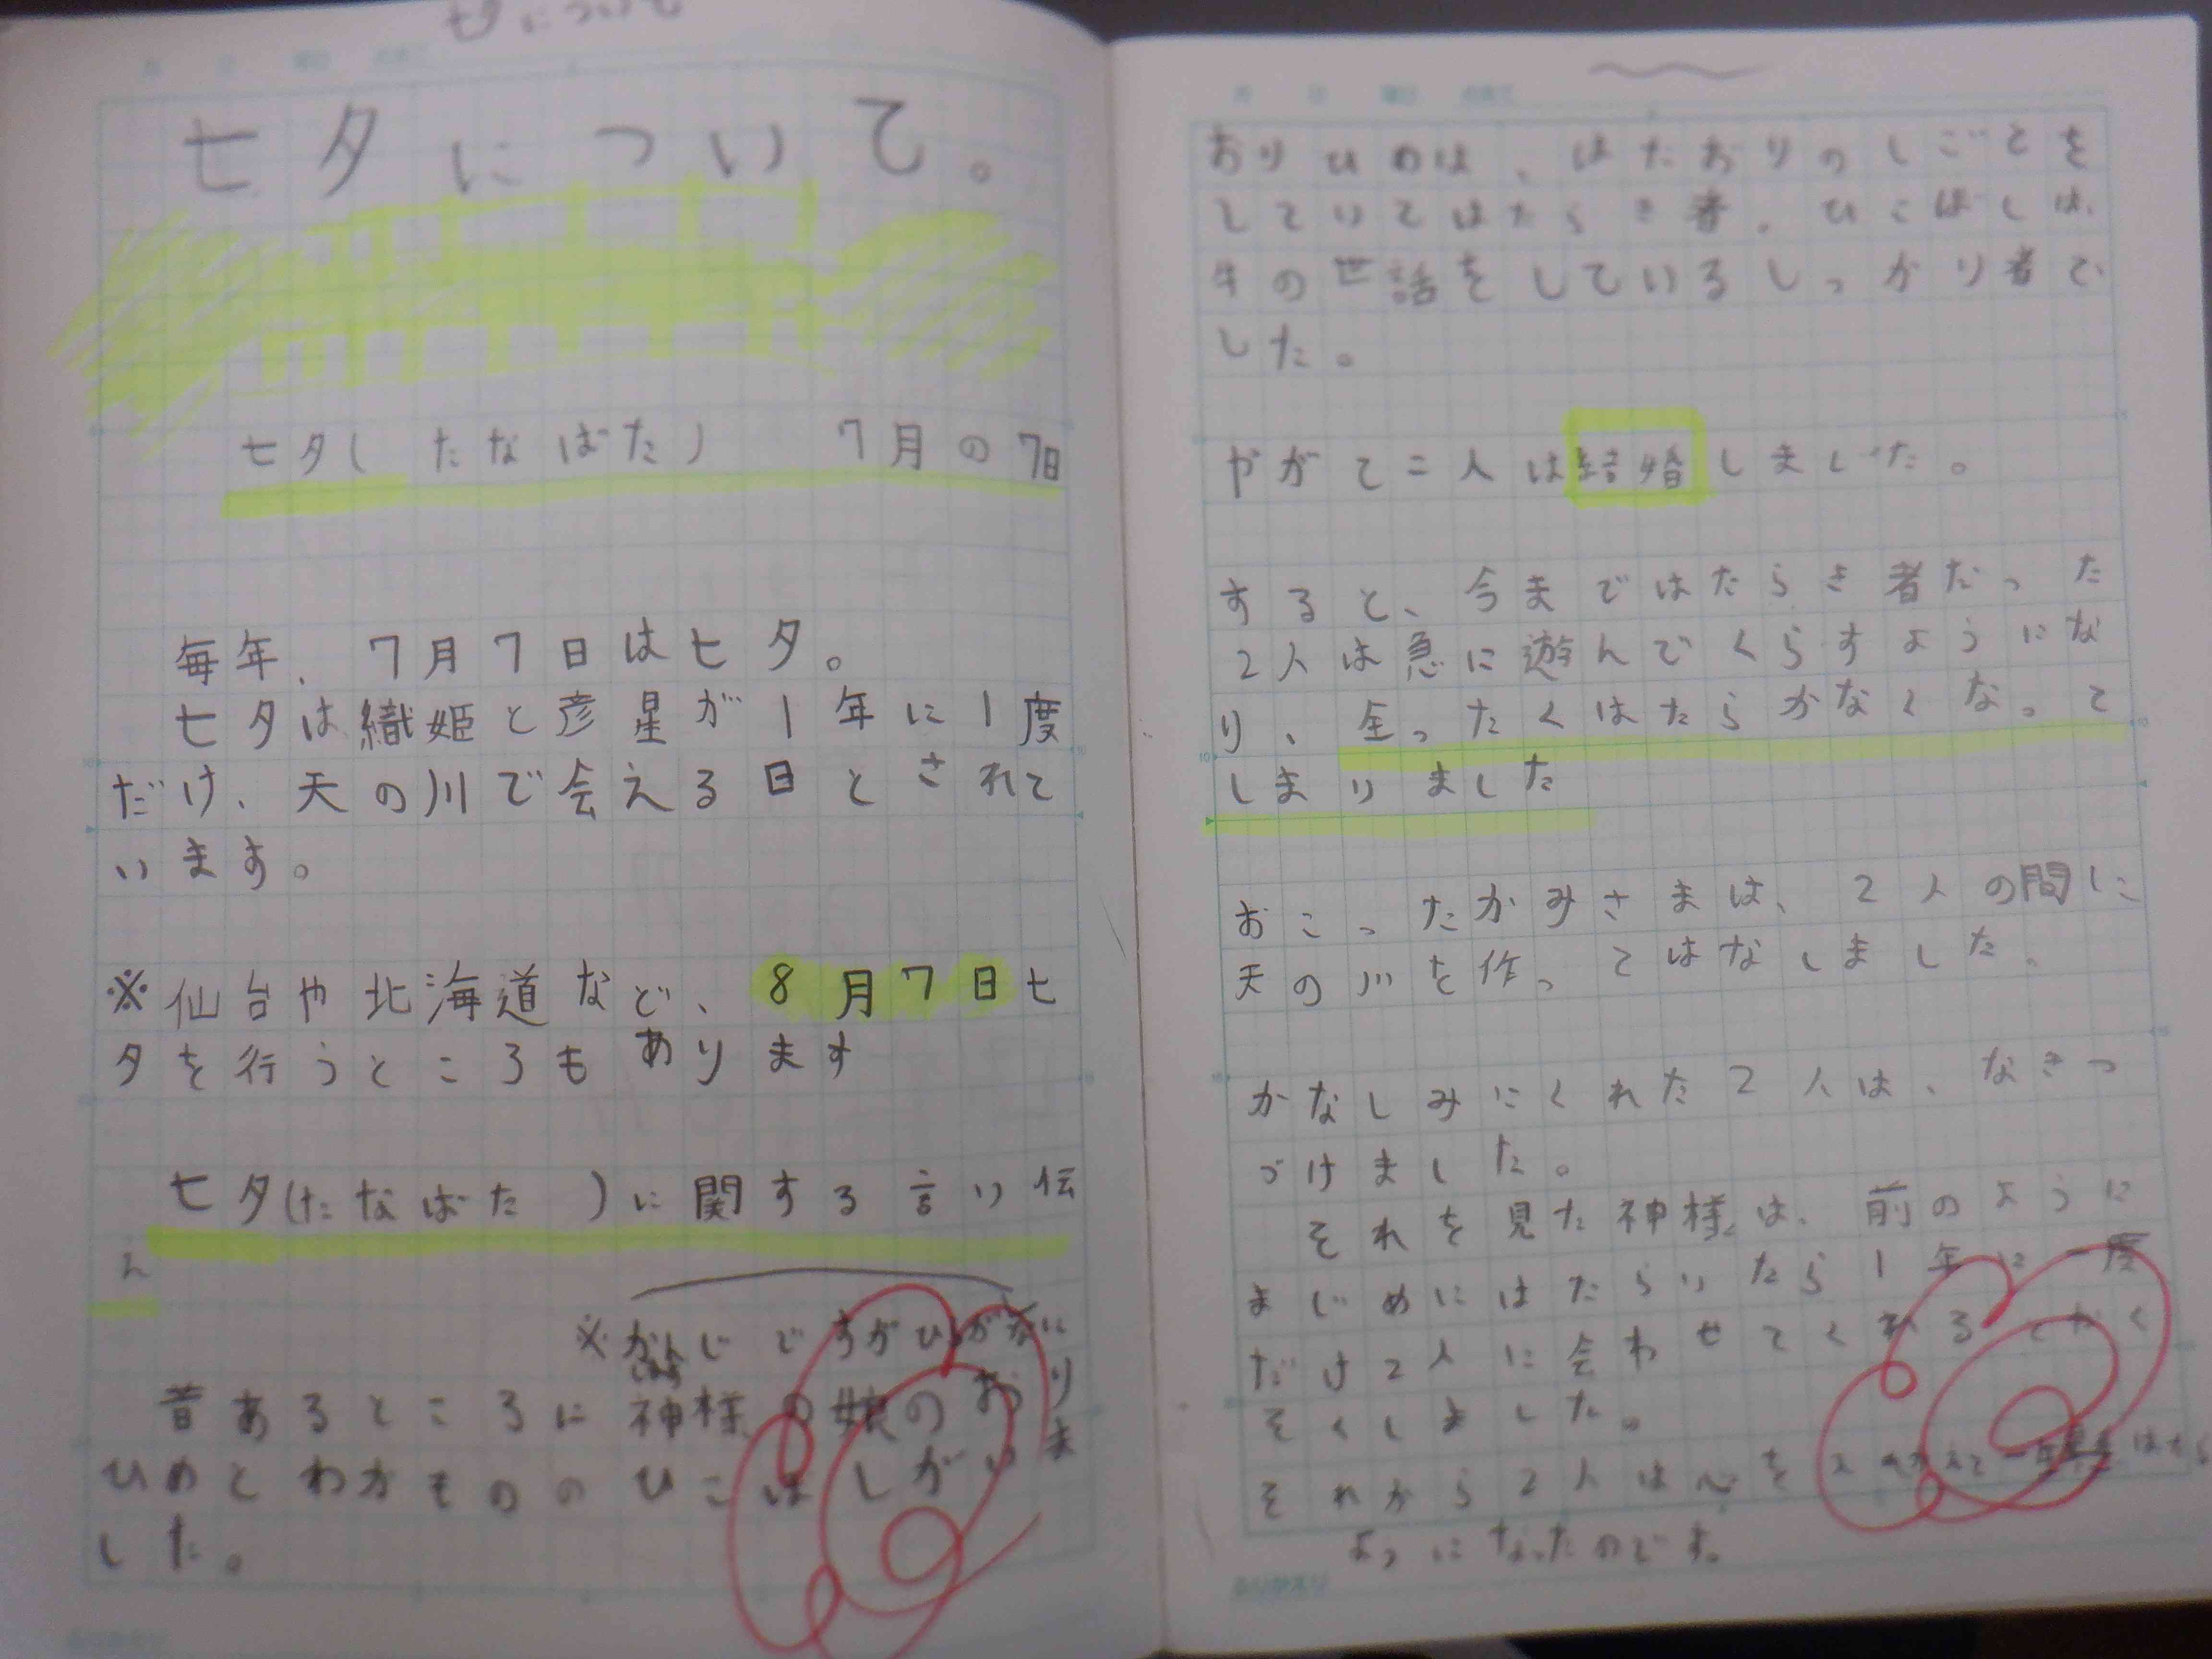 七夕について
七夕について。
七夕(たなばた) 7月の7日
毎年、7月7日は七夕。
七夕は織姫と彦星が1年に1度
だけ、天の川で会える日とされて
います。
※仙台や北海道など、8月7日七
夕を行うところもあります
七夕(たなばた)に関する言い伝
え
昔あるところに神様の娘のおり
ひめとわかもののひこぼしがいま
した。
おりひめは、はたおりのしごとを
していてはたらき者。ひこぼしは、
牛の世話をしているしっかり者で
した。
やがて二人は結婚しました。
すると、今まではたらき者だった
2人は急に遊んでくらすようにな
り、全ったくはたらかなくなって
しまいました
おこったかみさまは、2人の間に
天の川を作ってはなしました。
かなしみにくれた2人は、なきつ
づけました。
それを見た神様は、前のように
まじめにはたらいたら1年に一度
だけ2人に会わせてくれるとやく
そくしました。
それから2人は心を
ようになったのです。